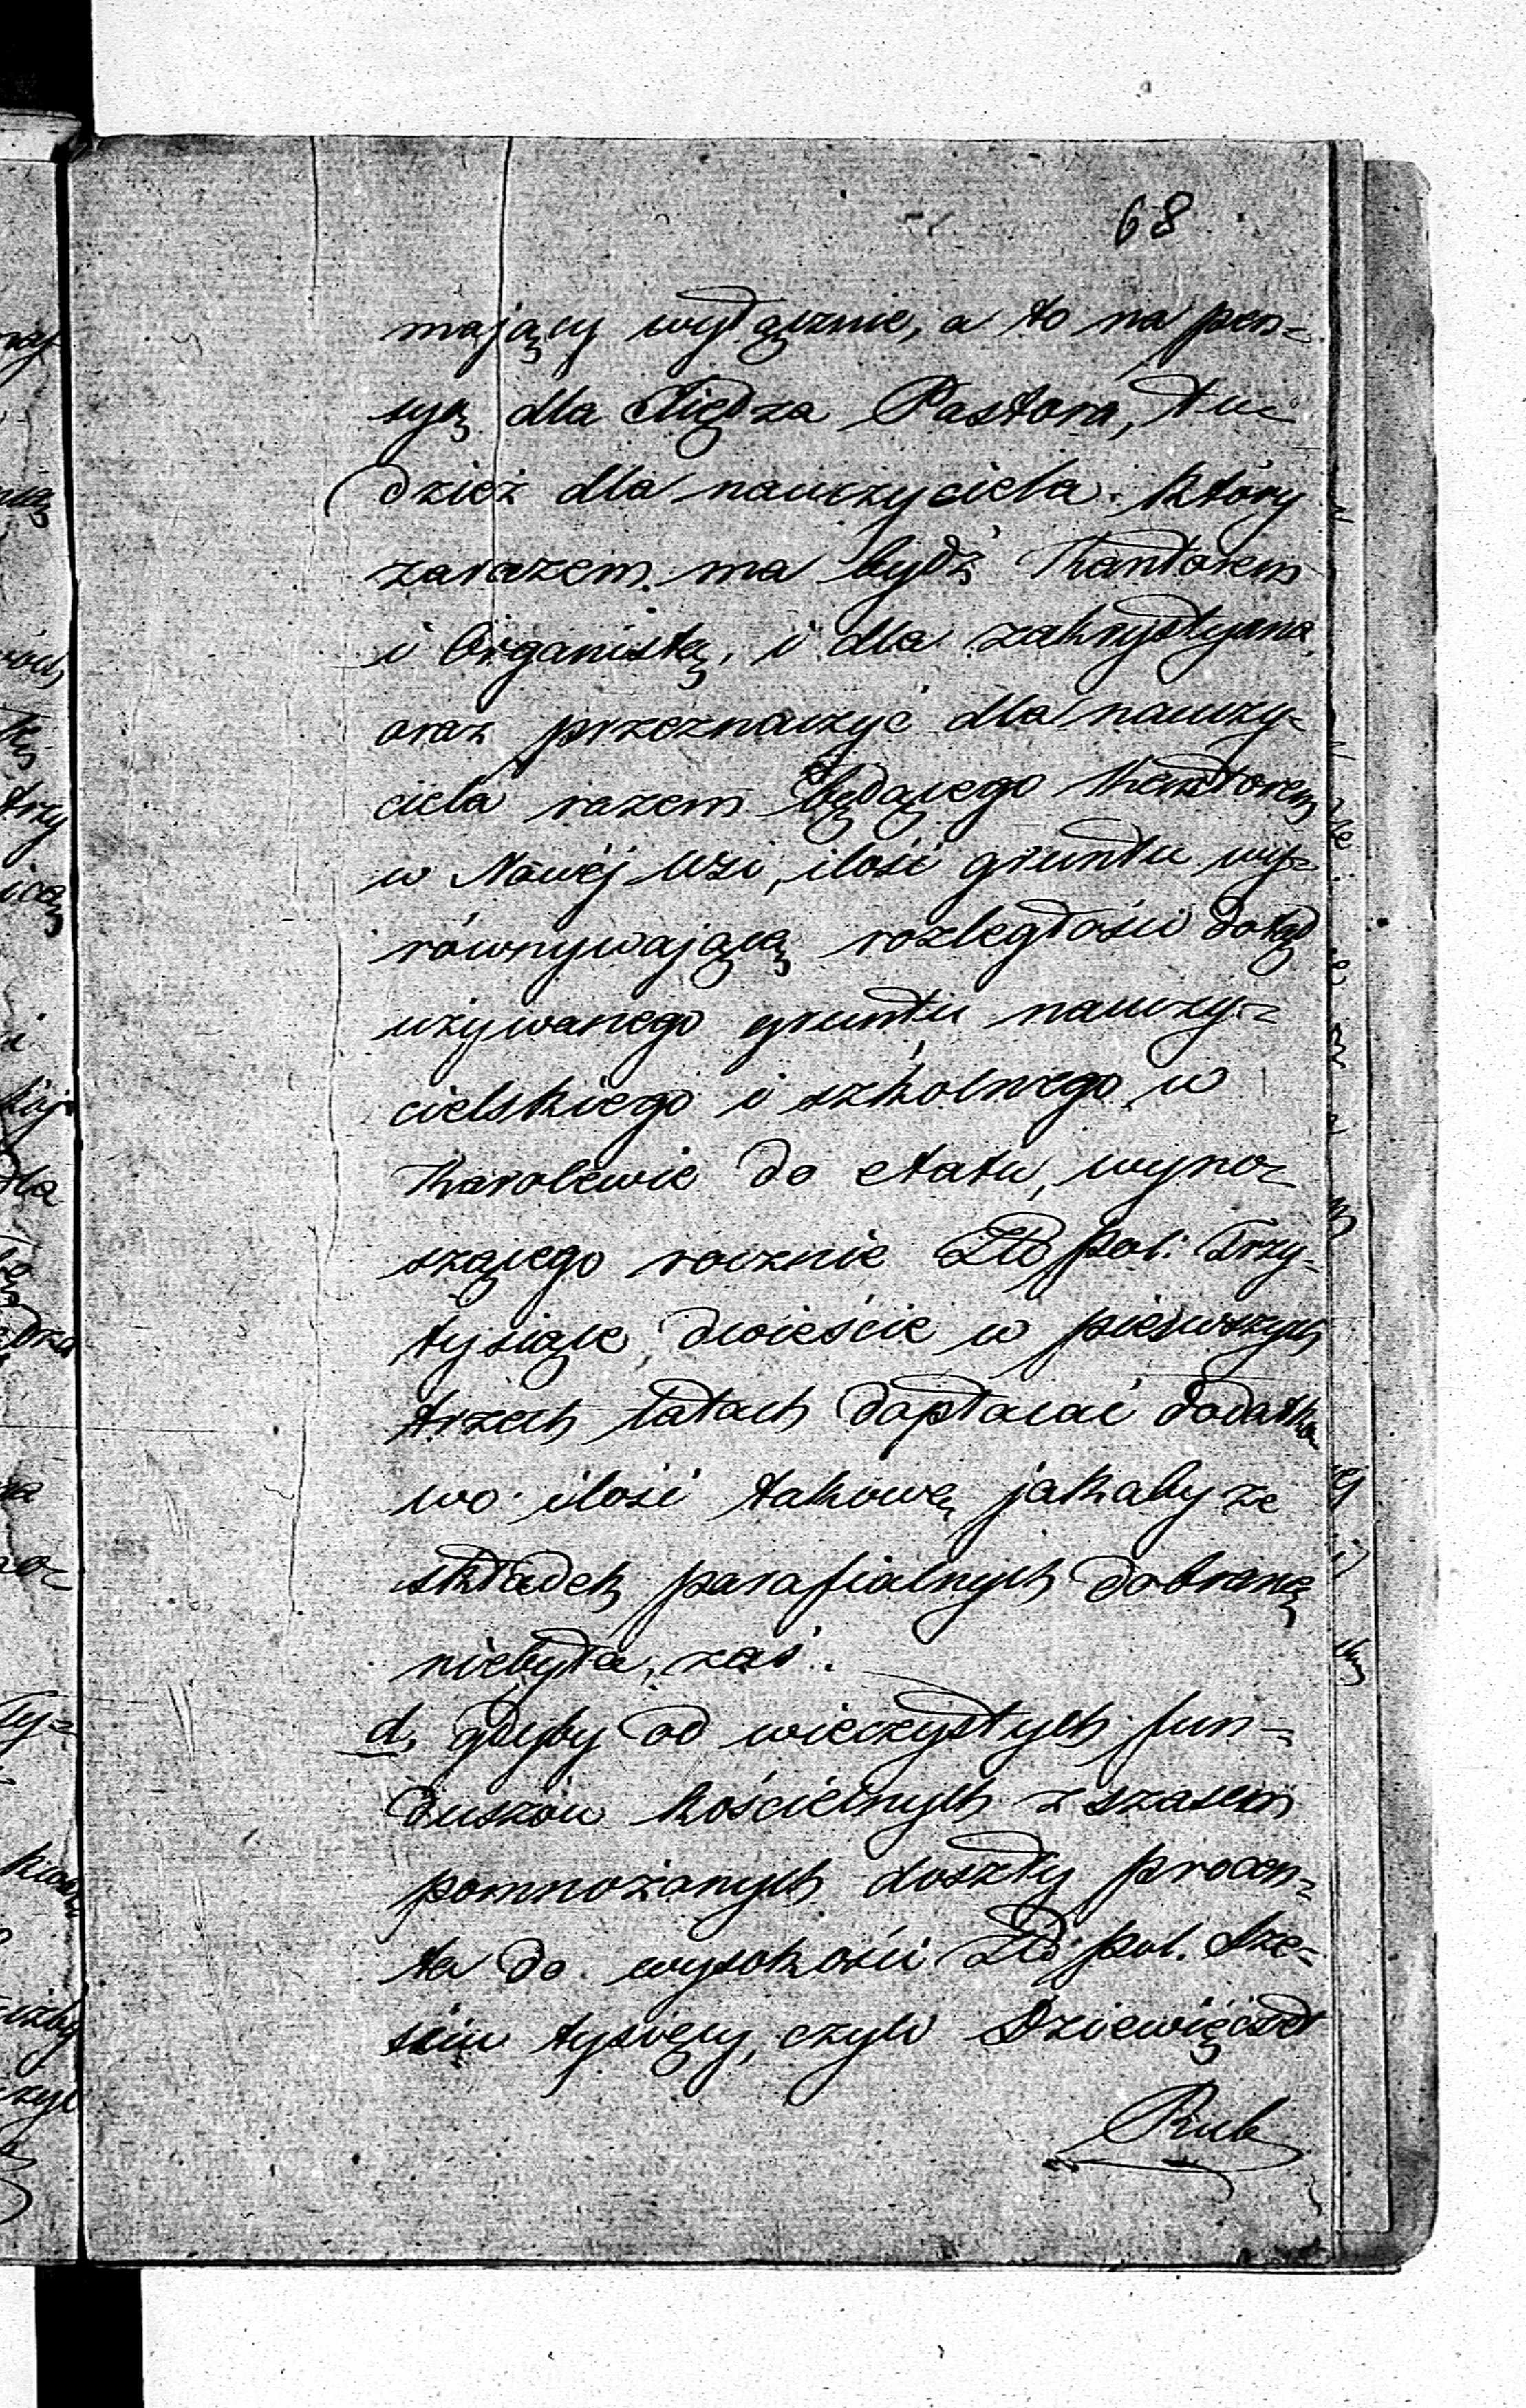 68
mający wyłącznie, a to na pen-
syą dla Xiędza Pastora, tu-
dzież dla nauczyciela, który
zarazem ma bydź Kantorem
i Organistą, i dla zakrystyana,
oraz przeznaczyć dla nauczy-
ciela razem będącego Kantorem
w Nowéj Wsi, ilość gruntu wy-
równywającą rozległości dotąd
używanego gruntu nauczy-
cielskiego i szkolnego w
Karolewie do etatu, wyno-
szącego rocznie Złp pol: Trzy-
tysiące dwieście w pierwszych
trzech latach dopłacać dodatko
wo ilość takową jakaby ze
składek parafialnych dobraną
niebyła, zaś.
d, gdyby od wieczystych fun-
duszów kościelnych z czasem
pomnożanych doszły procen-
ta do wysokości Złp pol. Sze-
ściu tysięcy, czyli Dziewięćset
Rub